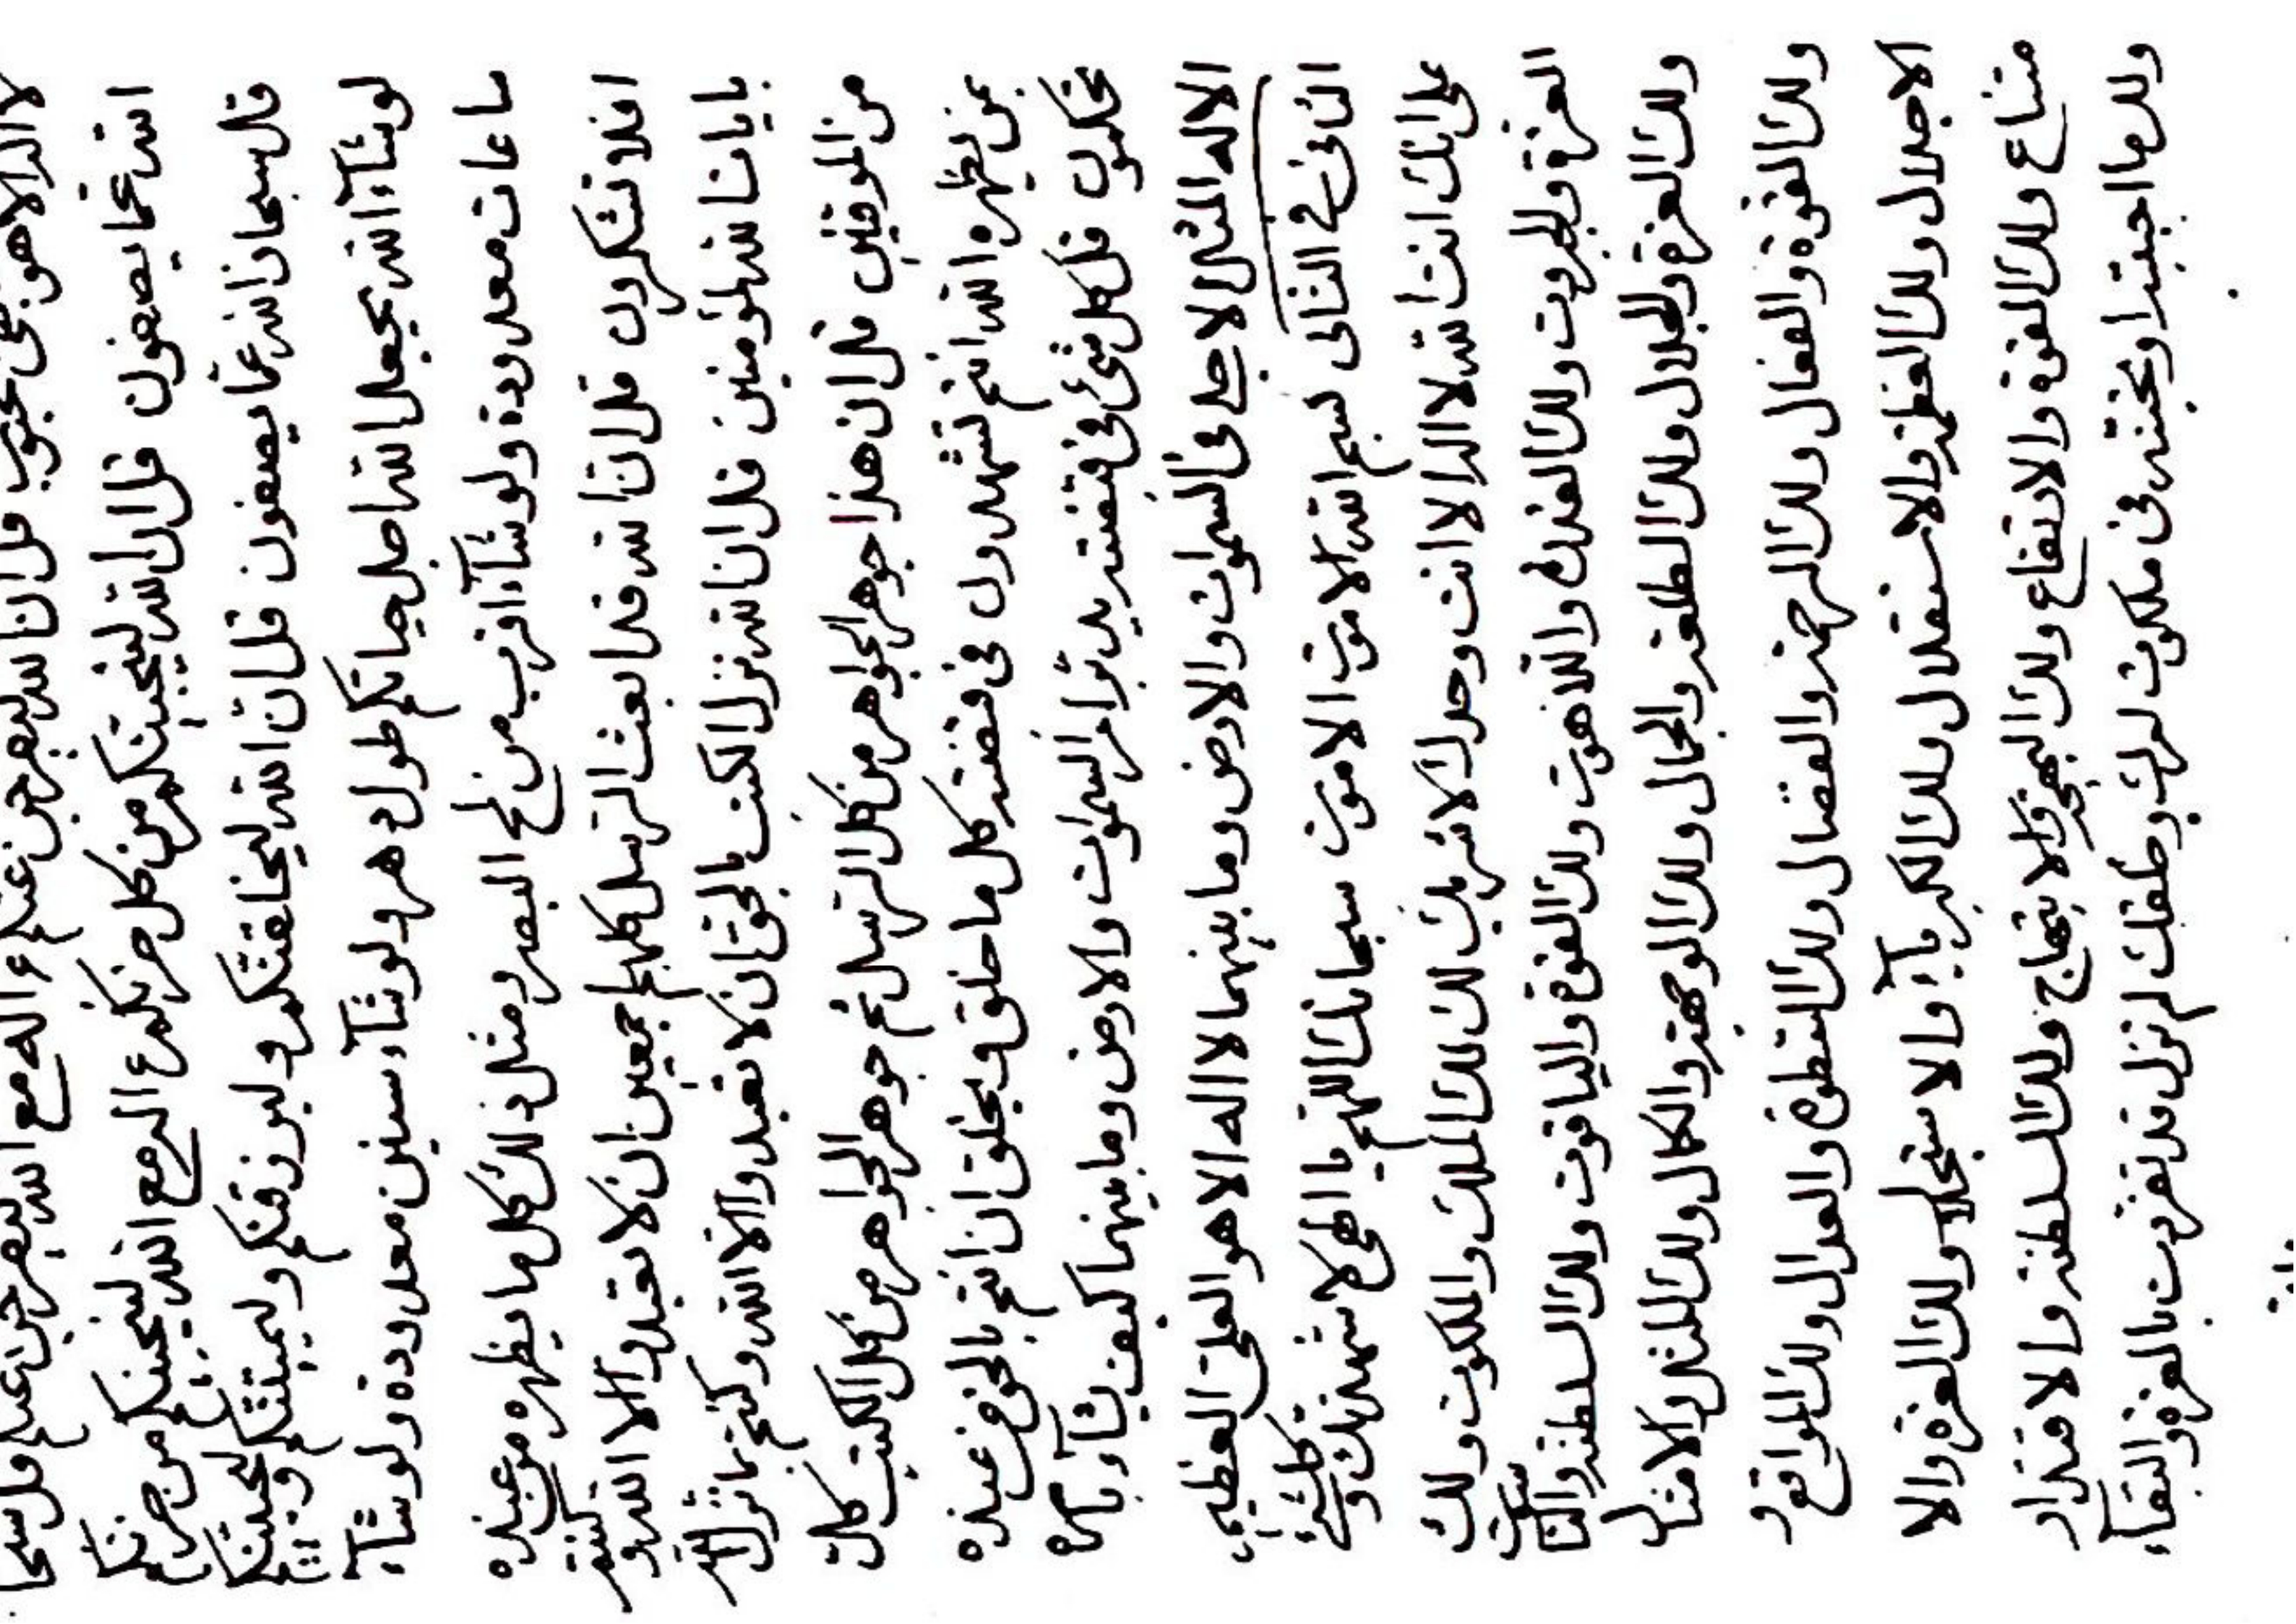 لا اله الا هو نجى محبوب قل ان الله ليفرجن عنكم ء اله مع الله ليفرجن عنكم قل سبحا
الله عما يصفون قل ان الله لينجينكم من كل حزنكم ء اله مع الله لينجينكم من حزنكم
قل سبحان الله عما يصفون قل ان الله ليخلقنكم وليرزقنكم وليميتنكم وليحيينكم
لو شآء الله يجعل الله اجل حياتكم طول دهر ولو شآء سنين معدودة ولو شآء
ساعات معدودة ولو شآء اقرب من لمح البصر ومثل ذلك كل ما يظهره من عنده
افلا تشكرون قل ان الله قد بعث الرسل كلهم اجمعين ان لا تعبدوا الا الله وكنتم
بايات الله لمؤمنين قل ان الله نزل الكتب بالحق ان لا تعبدوا الا الله وكنتم بما نزل الله
من الموقنين قل ان هذا جوهر الجواهر من كل الرسل ثم جوهر الجواهر من كل الكتب كل
بمن يظهره الله انتم تشهدون فى قبضته كل ما خلق ويخلق ان انتم بالحق من عنده
تحكمون قل كل شئ فى قبضته يدبر امر السموات والارض وما بينهما كيف يشآء بامره
الا له المثل الاجل فى السموات والارض وما بينهما لا اله الا هو العلى العظيم
الثانى فى الثانى بسم الله الاموت الاموت سبحانك اللهم يا الهى لاشهدنك وكلشئ
على انك انت الله لا اله الا انت وحدك لا شريك لك لك الملك والملكوت ولك
العزة والجبروت ولك القدرة واللاهوت ولك القوة والياقوت ولك السلطنة والناسوت
ولك العزة والجلال ولك الطلعة والجمال ولك الوجهة والكمال ولك المثل والامثال
ولك القوة والفعال ولك الرحمة والفضال ولك السطوة والعدال ولك المواقع
الاجلال ولك العظمة والاستقلال ولك الكبريآء والاستجلال ولك العزة والا
متناع ولك القوة والارتفاع ولك البهجة والابتهاج ولك السلطنة والاقتدار
ولك ما احببته او تحبنه فى ملكوت امرك وخلقك لم تزل قد تفردت بالعزة والبقآء